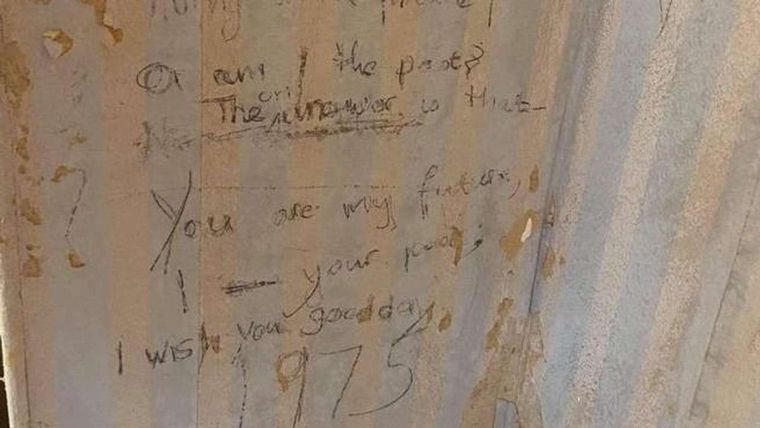 Or am I the past?
The only answer is that-
You are my future,
I your past;
I wish you good day.
1975